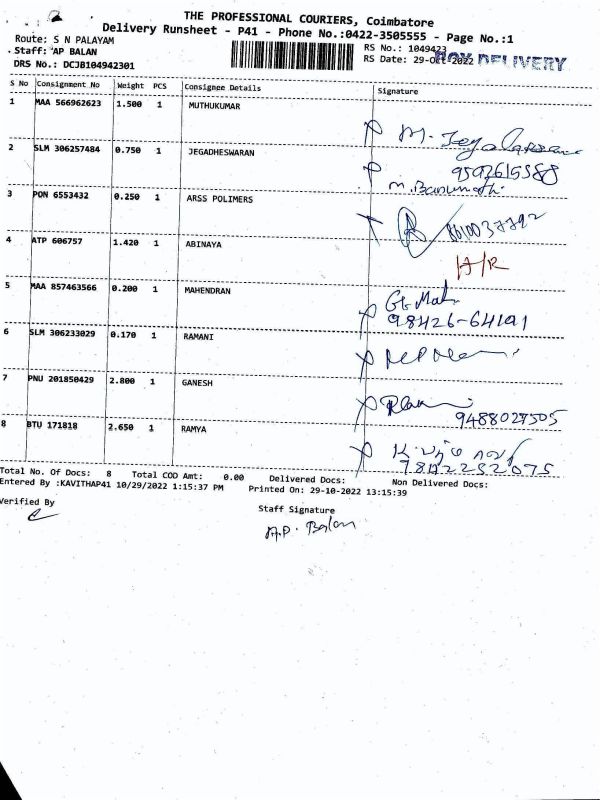 THE PROFESSIONAL COURIERS, Coimbatore
Delivery Runsheet - P41 - Phone No.:0422-3505555 - Page No.:1
Route: S N PALAYAM
RS No.: 1049423
Staff: AP BALAN
RS Date: 29-Oct-2022 DELIVERY
DRS No.: DCJB104942301
S No Consignment No Weight PCS Consignee Details Signature
1 MAA 566962623 1.500 1 MUTHUKUMAR
2 SLM 306257484 0.750 1 JEGADHESWARAN
M. Banumathi
3 PON 6553432 0.250 1 ARSS POLIMERS
4 ATP 606757 1.420 1 ABINAYA
H/R
5 MAA 857463566 0.200 1 MAHENDRAN
98426-64191
6 SLM 306233029 0.170 1 RAMANI
7 PNU 201850429 2.800 1 GANESH
9488027505
8 BTU 171818 2.650 1 RAMYA
Total No. Of Docs: 8 Total COD Amt: 0.00 Delivered Docs: Non Delivered Docs:
Entered By :KAVITHAP41 10/29/2022 1:15:37 PM Printed On: 29-10-2022 13:15:39
Verified By
Staff Signature
A.P. Balan